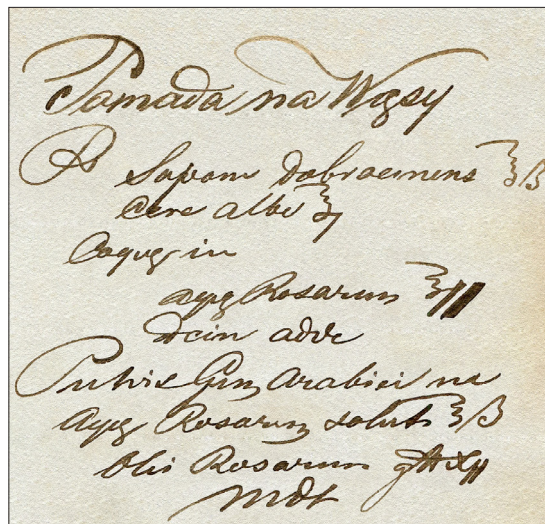 Pomada na Wąsy
Rs Sapon dobraemens ʒß
Cere albe ʒj
Coque in
aque Rosarum ʒjj
dein adde
Pulvis Gum Arabici na
Aque Rosarum solut ʒß
Olii Rosarum gtt xjj
MDS